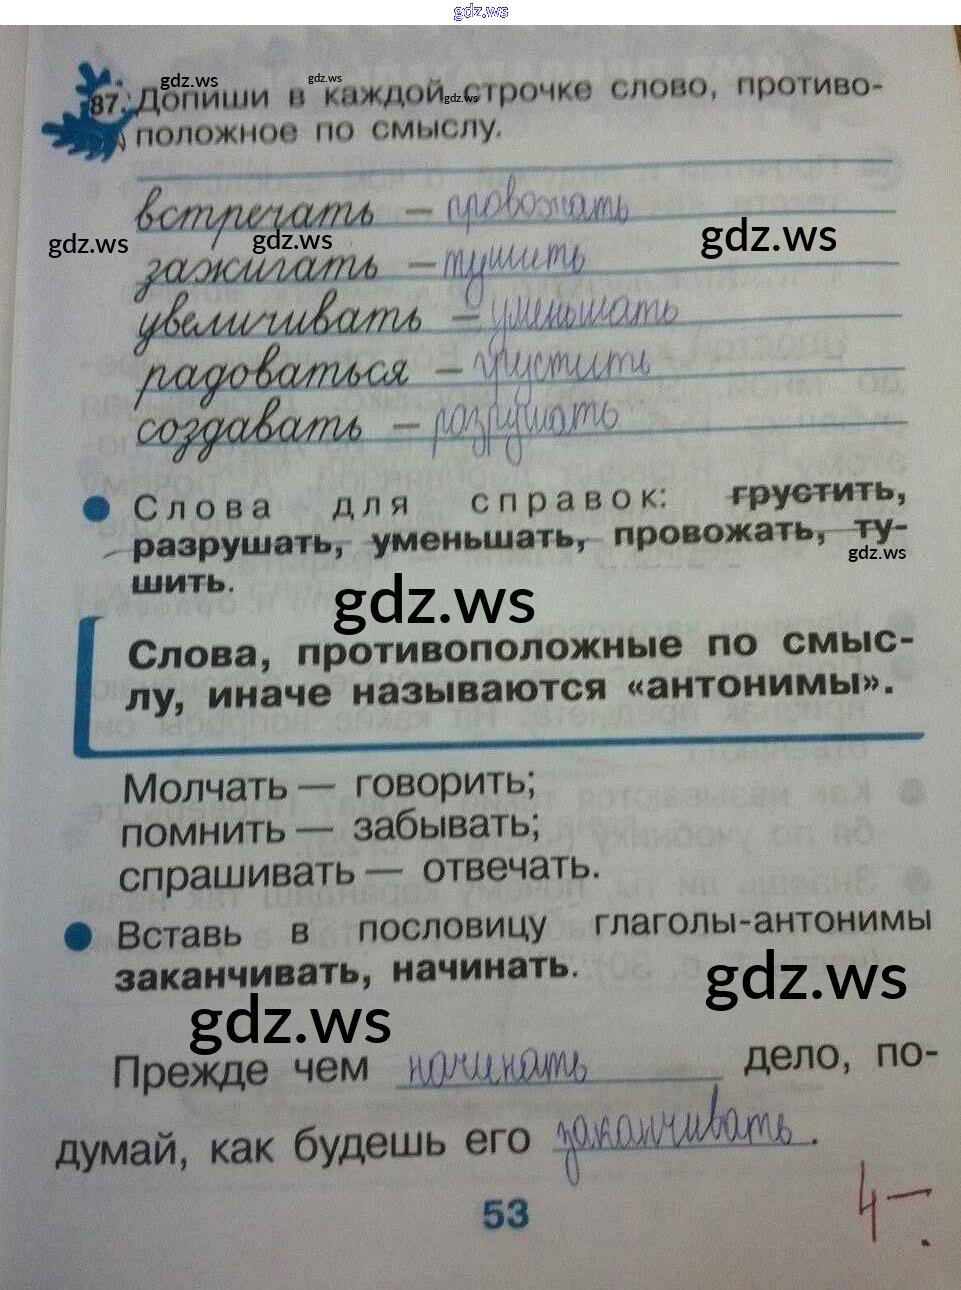 gdz.ws
gdz.ws gdz.ws
87. Допиши в каждой строчке слово, противо-
gdz.ws
положное по смыслу.
встречать – провожать
gdz.ws gdz.ws gdz.ws
зажигать – тушить
увеличивать – уменьшать
радоваться – грустить
создавать – разрушать
Слова для справок: грустить,
разрушать, уменьшать, провожать, ту-
gdz.ws
шить.
gdz.ws
Слова, противоположные по смыс-
лу, иначе называются «антонимы».
Молчать — говорить;
помнить — забывать;
спрашивать — отвечать.
Вставь в пословицу глаголы-антонимы
заканчивать, начинать.
gdz.ws
gdz.ws
Прежде чем начинать дело, по-
думай, как будешь его заканчивать.
53
4–